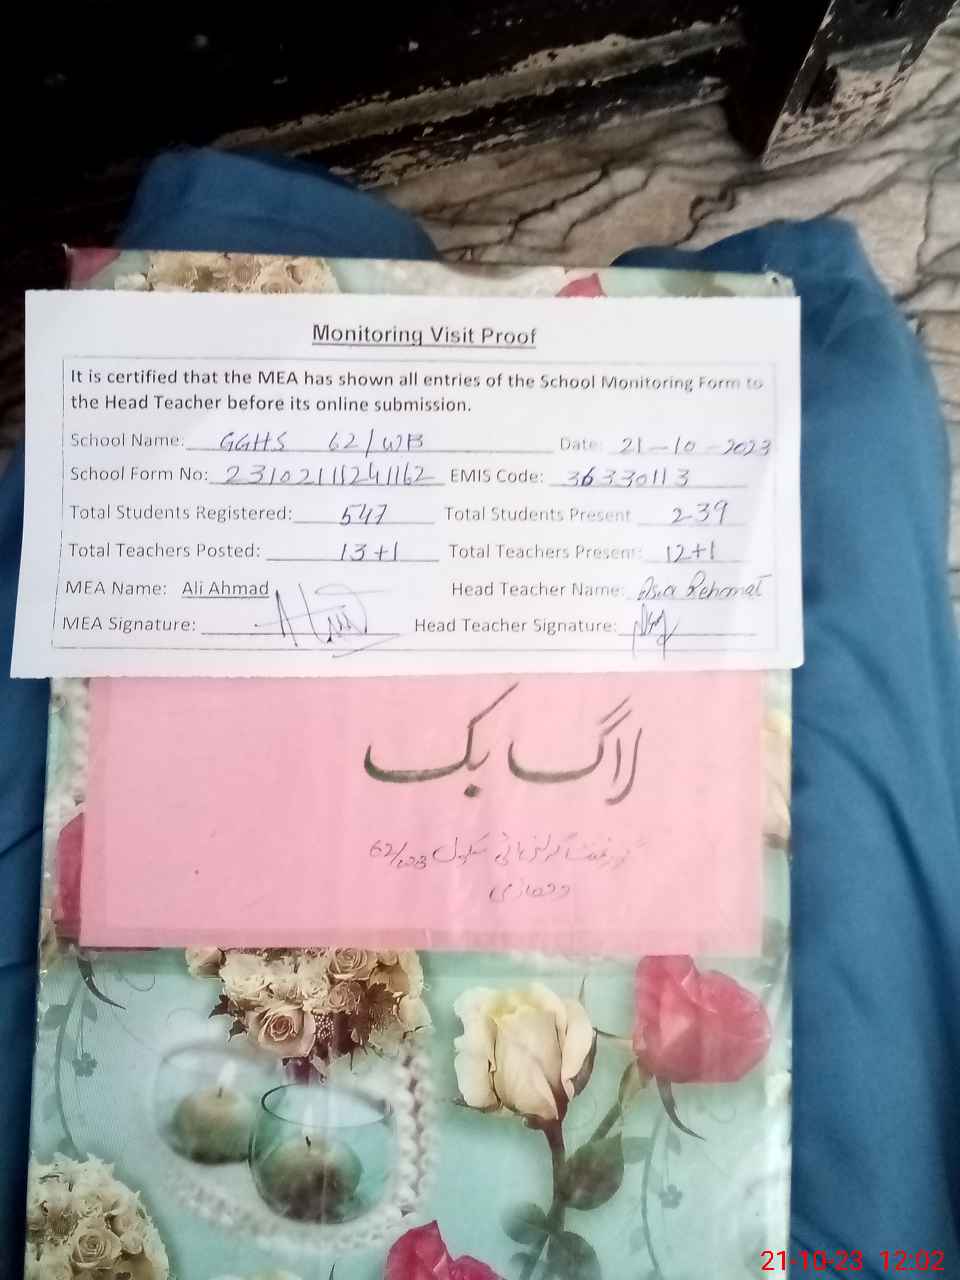 Monitoring Visit Proof
It is certified that the MEA has shown all entries of the School Monitoring Form to
the Head Teacher before its online submission.
School Name: GGHS 62/WB Date: 21-10-2023
School Form No: 23102111241162 EMIS Code: 36330113
Total Students Registered: 547 Total Students Present 239
Total Teachers Posted: 13+1 Total Teachers Present: 12+1
MEA Name: Ali Ahmad Head Teacher Name: Rehmat
MEA Signature: Head Teacher Signature:
لاگ بک
گورنمنٹ گرلز ہائی سکول 62/WB
وہاڑی
21-10-23 12:02